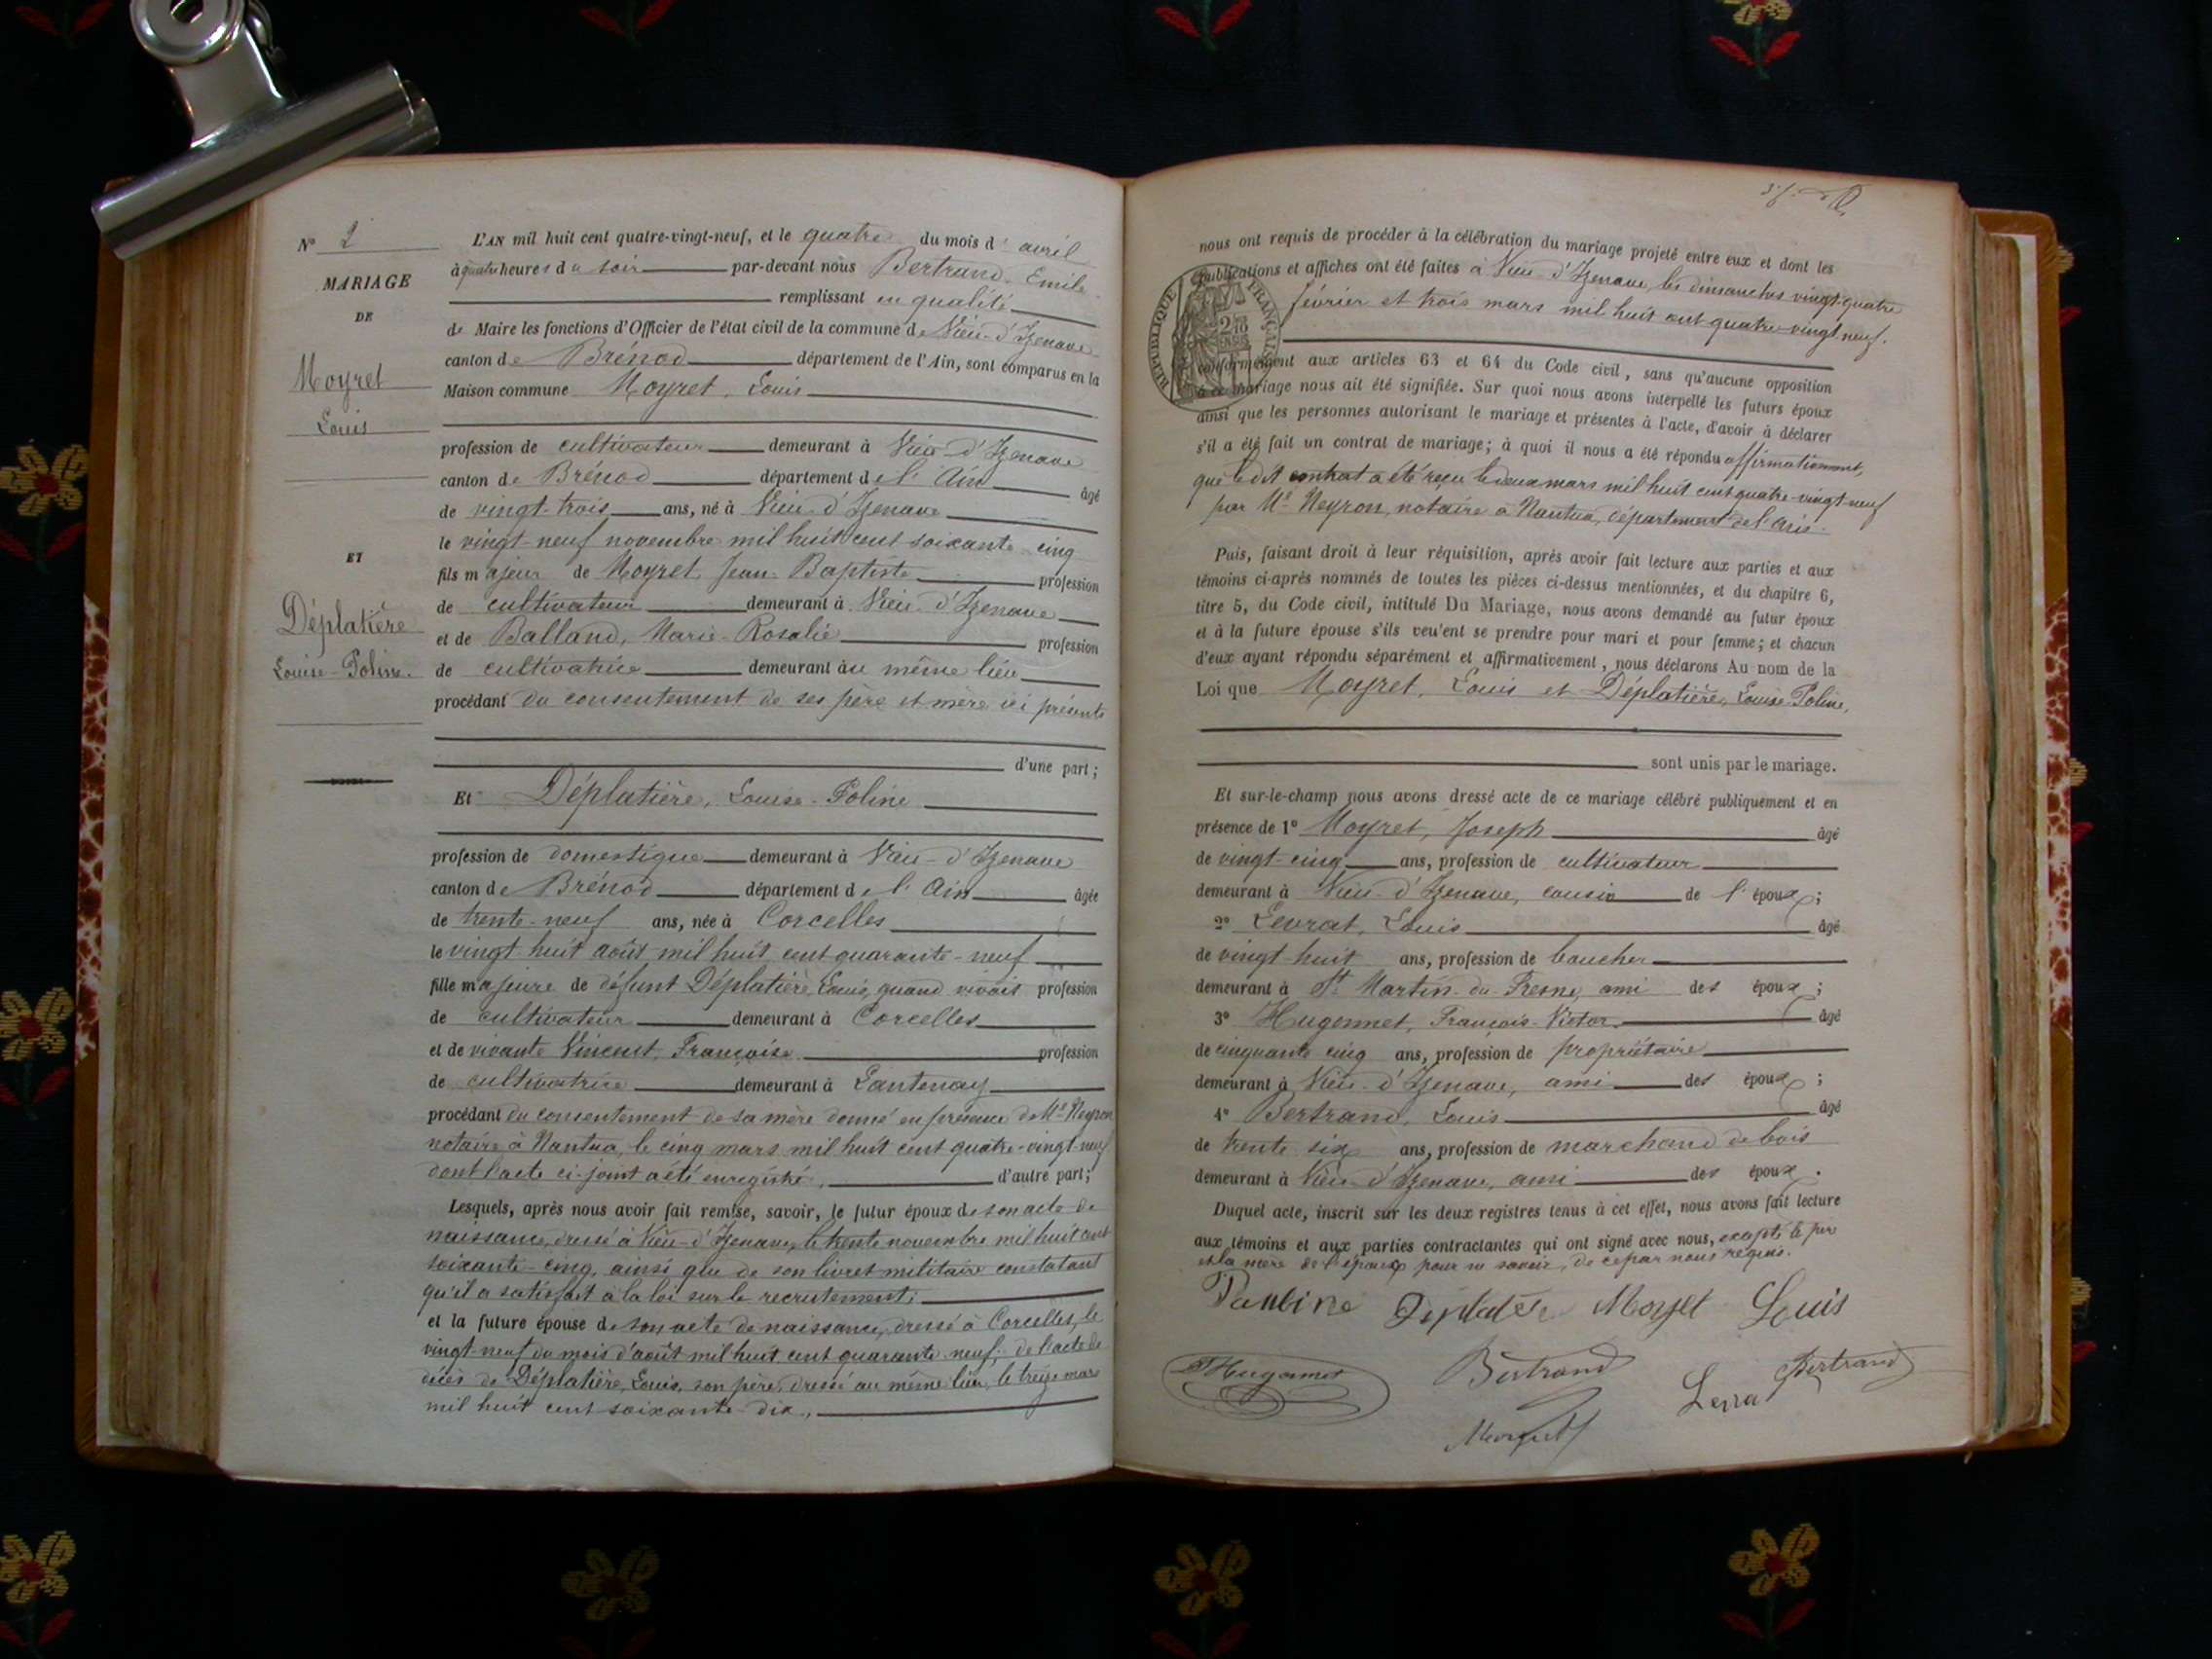 N° 2
MARIAGE
DE
Moyret
Louis
ET
Déplatière
Louise-Poline.
L'AN mil huit cent quatre-vingt-neuf, et le quatre du mois d'avril
à quatre heures du soir par-devant nous Bertrand, Emile
remplissant en qualité
de Maire les fonctions d'Officier de l'état civil de la commune de Vieu-d'Izenave
canton de Brénod département de l'Ain, sont comparus en la
Maison commune Moyret, Louis
profession de cultivateur demeurant à Vieu-d'Izenave
canton de Brénod département de l'Ain âgé
de vingt-trois ans, né à Vieu-d'Izenave
le vingt-neuf novembre mil huit cent soixante cinq
fils majeur de Moyret, Jean-Baptiste profession
de cultivateur demeurant à Vieu-d'Izenave
et de Balland, Marie-Rosalie profession
de cultivatrice demeurant au même lieu
procédant du consentement de ses père et mère ici présents
d'une part;
Et Déplatière, Louise-Poline
profession de domestique demeurant à Vieu-d'Izenave
canton de Brénod département de l'Ain âgée
de trente-neuf ans, née à Corcelles
le vingt-huit août mil huit cent quarante-neuf
fille majeure de défunt Déplatière, Louis, quand vivait profession
de cultivateur demeurant à Corcelles
et de vivante Vincent, Françoise profession
de cultivatrice demeurant à Lantenay
procédant du consentement de sa mère donné en présence de Me Neyron
notaire à Nantua, le cinq mars mil huit cent quatre-vingt-neuf
dont l'acte ci-joint a été enregistré, d'autre part;
Lesquels, après nous avoir fait remise, savoir, le futur époux de son acte de
naissance, dressé à Vieu-d'Izenave, le trente novembre mil huit cent
soixante-cinq, ainsi que de son livret militaire constatant
qu'il a satisfait à la loi sur le recrutement;
et la future épouse de son acte de naissance, dressé à Corcelles, le
vingt-neuf du mois d'août mil huit cent quarante-neuf; de l'acte de
décès de Déplatière, Louis, son père, dressé au même lieu, le treize mars
mil huit cent soixante-dix,
nous ont requis de procéder à la célébration du mariage projeté entre eux et dont les
publications et affiches ont été faites à Vieu-d'Izenave, les dimanches vingt-quatre
février et trois mars mil huit cent quatre-vingt-neuf.
RÉPUBLIQUE FRANÇAISE
conformément aux articles 63 et 64 du Code civil, sans qu'aucune opposition
à ce mariage nous ait été signifiée. Sur quoi nous avons interpellé les futurs époux
ainsi que les personnes autorisant le mariage et présentes à l'acte, d'avoir à déclarer
s'il a été fait un contrat de mariage; à quoi il nous a été répondu affirmativement,
que le dit contrat a été reçu le deux mars mil huit cent quatre-vingt-neuf
par Me Neyron, notaire à Nantua, département de l'Ain.
Puis, faisant droit à leur réquisition, après avoir fait lecture aux parties et aux
témoins ci-après nommés de toutes les pièces ci-dessus mentionnées, et du chapitre 6,
titre 5, du Code civil, intitulé Du Mariage, nous avons demandé au futur époux
et à la future épouse s'ils veulent se prendre pour mari et pour femme; et chacun
d'eux ayant répondu séparément et affirmativement, nous déclarons Au nom de la
Loi que Moyret, Louis et Déplatière, Louise-Poline,
sont unis par le mariage.
Et sur-le-champ nous avons dressé acte de ce mariage célébré publiquement et en
présence de 1° Moyret, Joseph âgé
de vingt-cinq ans, profession de cultivateur
demeurant à Vieu-d'Izenave, cousin de l'époux;
2° Levrat, Louis âgé
de vingt-huit ans, profession de boucher
demeurant à St Martin-du-Fresne, ami des époux;
3° Hugonnet, François-Victor âgé
de cinquante cinq ans, profession de propriétaire
demeurant à Vieu-d'Izenave, ami des époux;
4° Bertrand, Louis âgé
de trente six ans, profession de marchand de bois
demeurant à Vieu-d'Izenave, ami des époux.
Duquel acte, inscrit sur les deux registres tenus à cet effet, nous avons fait lecture
aux témoins et aux parties contractantes qui ont signé avec nous, excepté le père
et la mère de l'époux pour ne savoir, de ce par nous requis.
Pauline Déplatière Moyret Louis
Hugonnet Bertrand Levrat Bertrand
Moyret